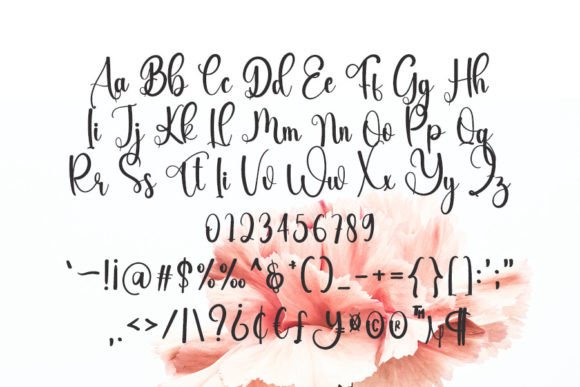 Aa Bb Cc Dd Ee Ff Gg Hh
Ii Jj Kk Ll Mm Nn Oo Pp Qq
Rr Ss Tt Ii Vv Ww Xx Yy Zz
0123456789
`~!¡@#$%‰^&*()_-+={}[]:';"
,.<>/|\?¿¢€ƒ¥¤©®™¶